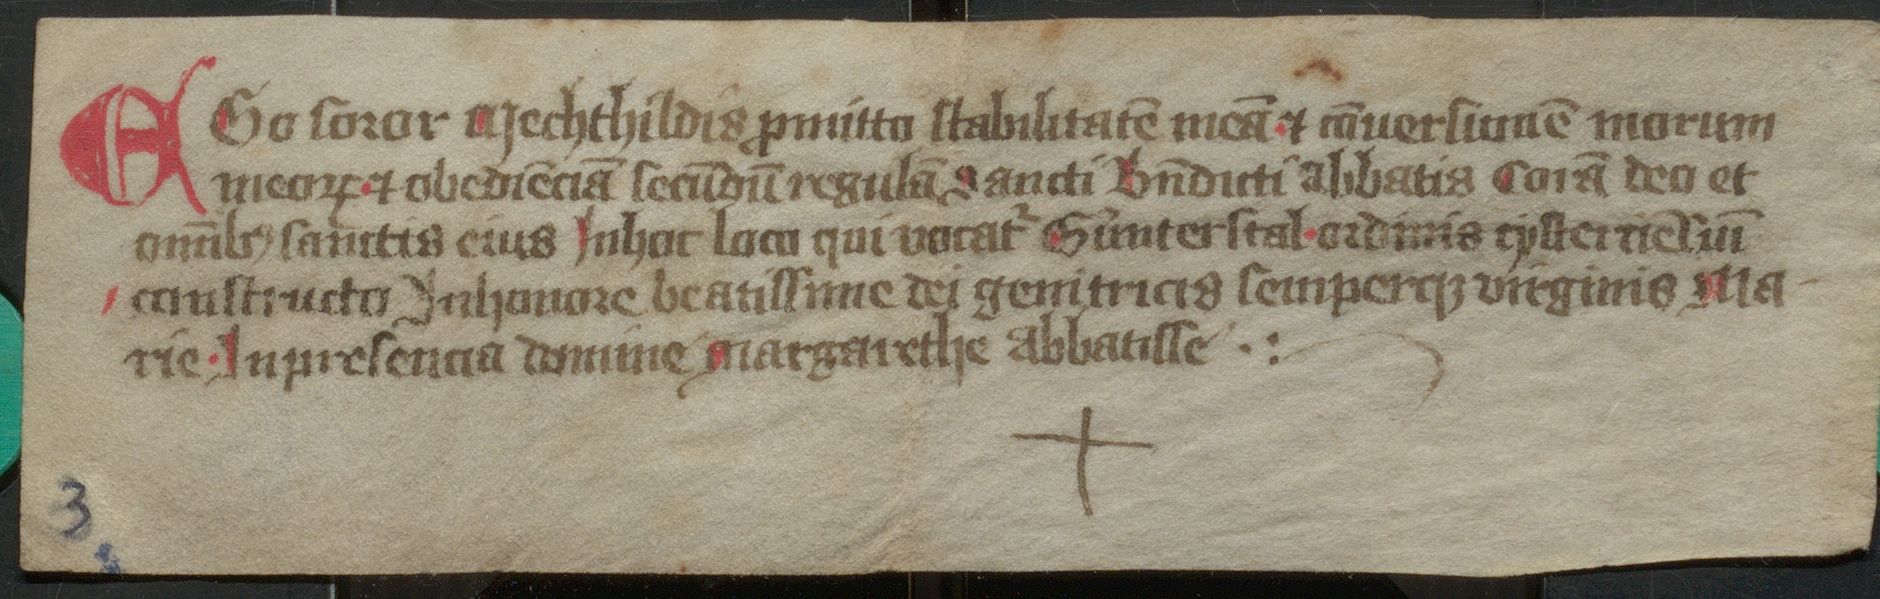 EGo soror Mechthildis ꝓmitto stabilitatē meā · ⁊ cōuersionē morum
meoꝝ · ⁊ obediēciā secūdū regulā Sancti Bn̄dicti abbatis Corā deo et
omībꝰ sanctis eius Inhoc loco qui vocatᷣ Gunterstal · ordinis cystercieñsiū
constructo Inhonore beatissime dei genitricis semperqꝫ virginis Ma-
rie · Inpresencia domine Margarethe abbatisse · :
3